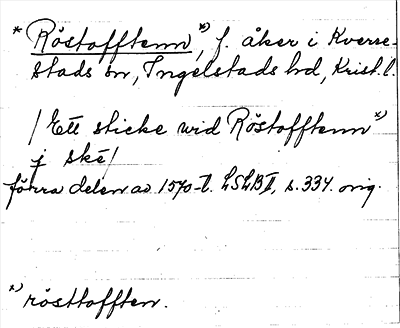 * Röstofftenn *), f. åker i Kverre-
stads sn, Ingelstads hd, Krist. l.
/Ett sticke wid Röstofftenn *)
j ske/
förra delen av 1570-t. LSLB II, s. 334. orig.
*) rösttofften.